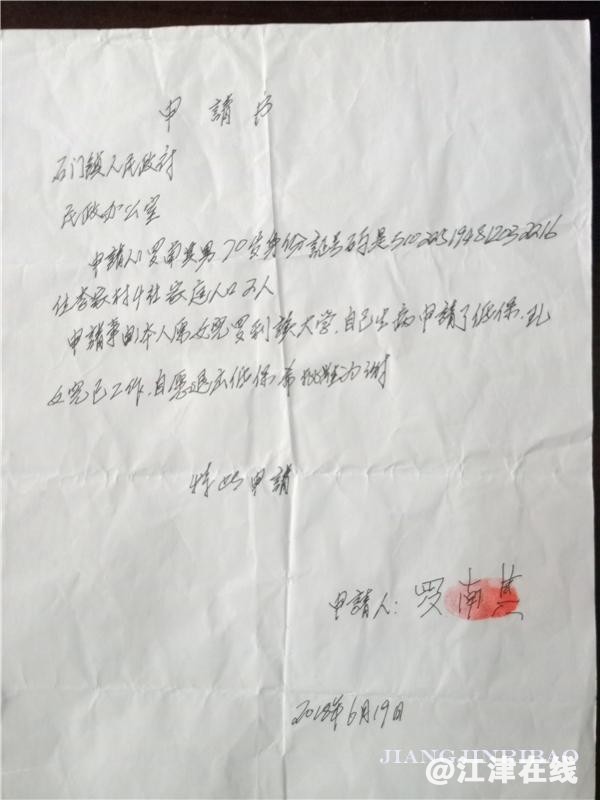 申請书
石门镇人民政府
民政办公室
申請人罗南其男70岁身份証号码是510225194812032216
住李家村4社家庭人口2人
申請事由本人原女児罗利读大学,自己生病申請了低保.现
女児已工作.自愿退出低保希批准为谢
特此申請
申請人:罗南其
2018年6月19日
JIANGJINRIBAO
@江津在线